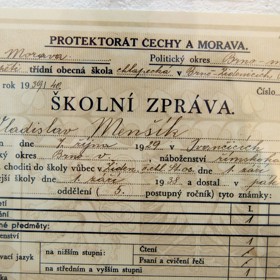 PROTEKTORÁT ČECHY A MORAVA.
Morava Politický okres Brno
třídní obecná škola chlapecká v Brně-Židenicích
rok 1939/40 Číslo
ŠKOLNÍ ZPRÁVA.
Vladislav Menšík
dne 7. října 1929 v Ivančicích
okres Brno v. náboženství
chodit do školy vůbec v 1. září
školy dne 1. září 1938 a dostal v
oddělení (5. postupném ročníku) tyto známky:
předměty:
vací jazyk
na nižším stupni: Čtení
Psaní a cvičení řeči 1
na středním a vyšším stupni